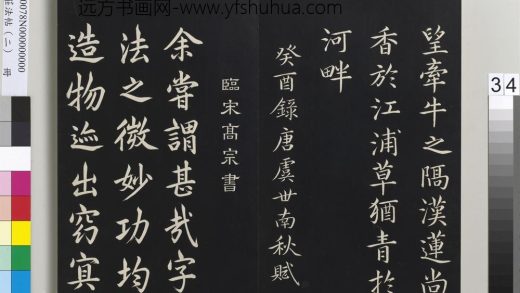 远方书画网-www.yfshuhua.com
望牽牛之隔漢蓮尚
香於江浦草猶青於
河畔
癸酉錄唐虞世南秋賦
臨宋髙宗書
余嘗謂甚㢤字
法之微妙功均
造物迹出窈寘
0078N000000000
法帖（二） 冊
3 4